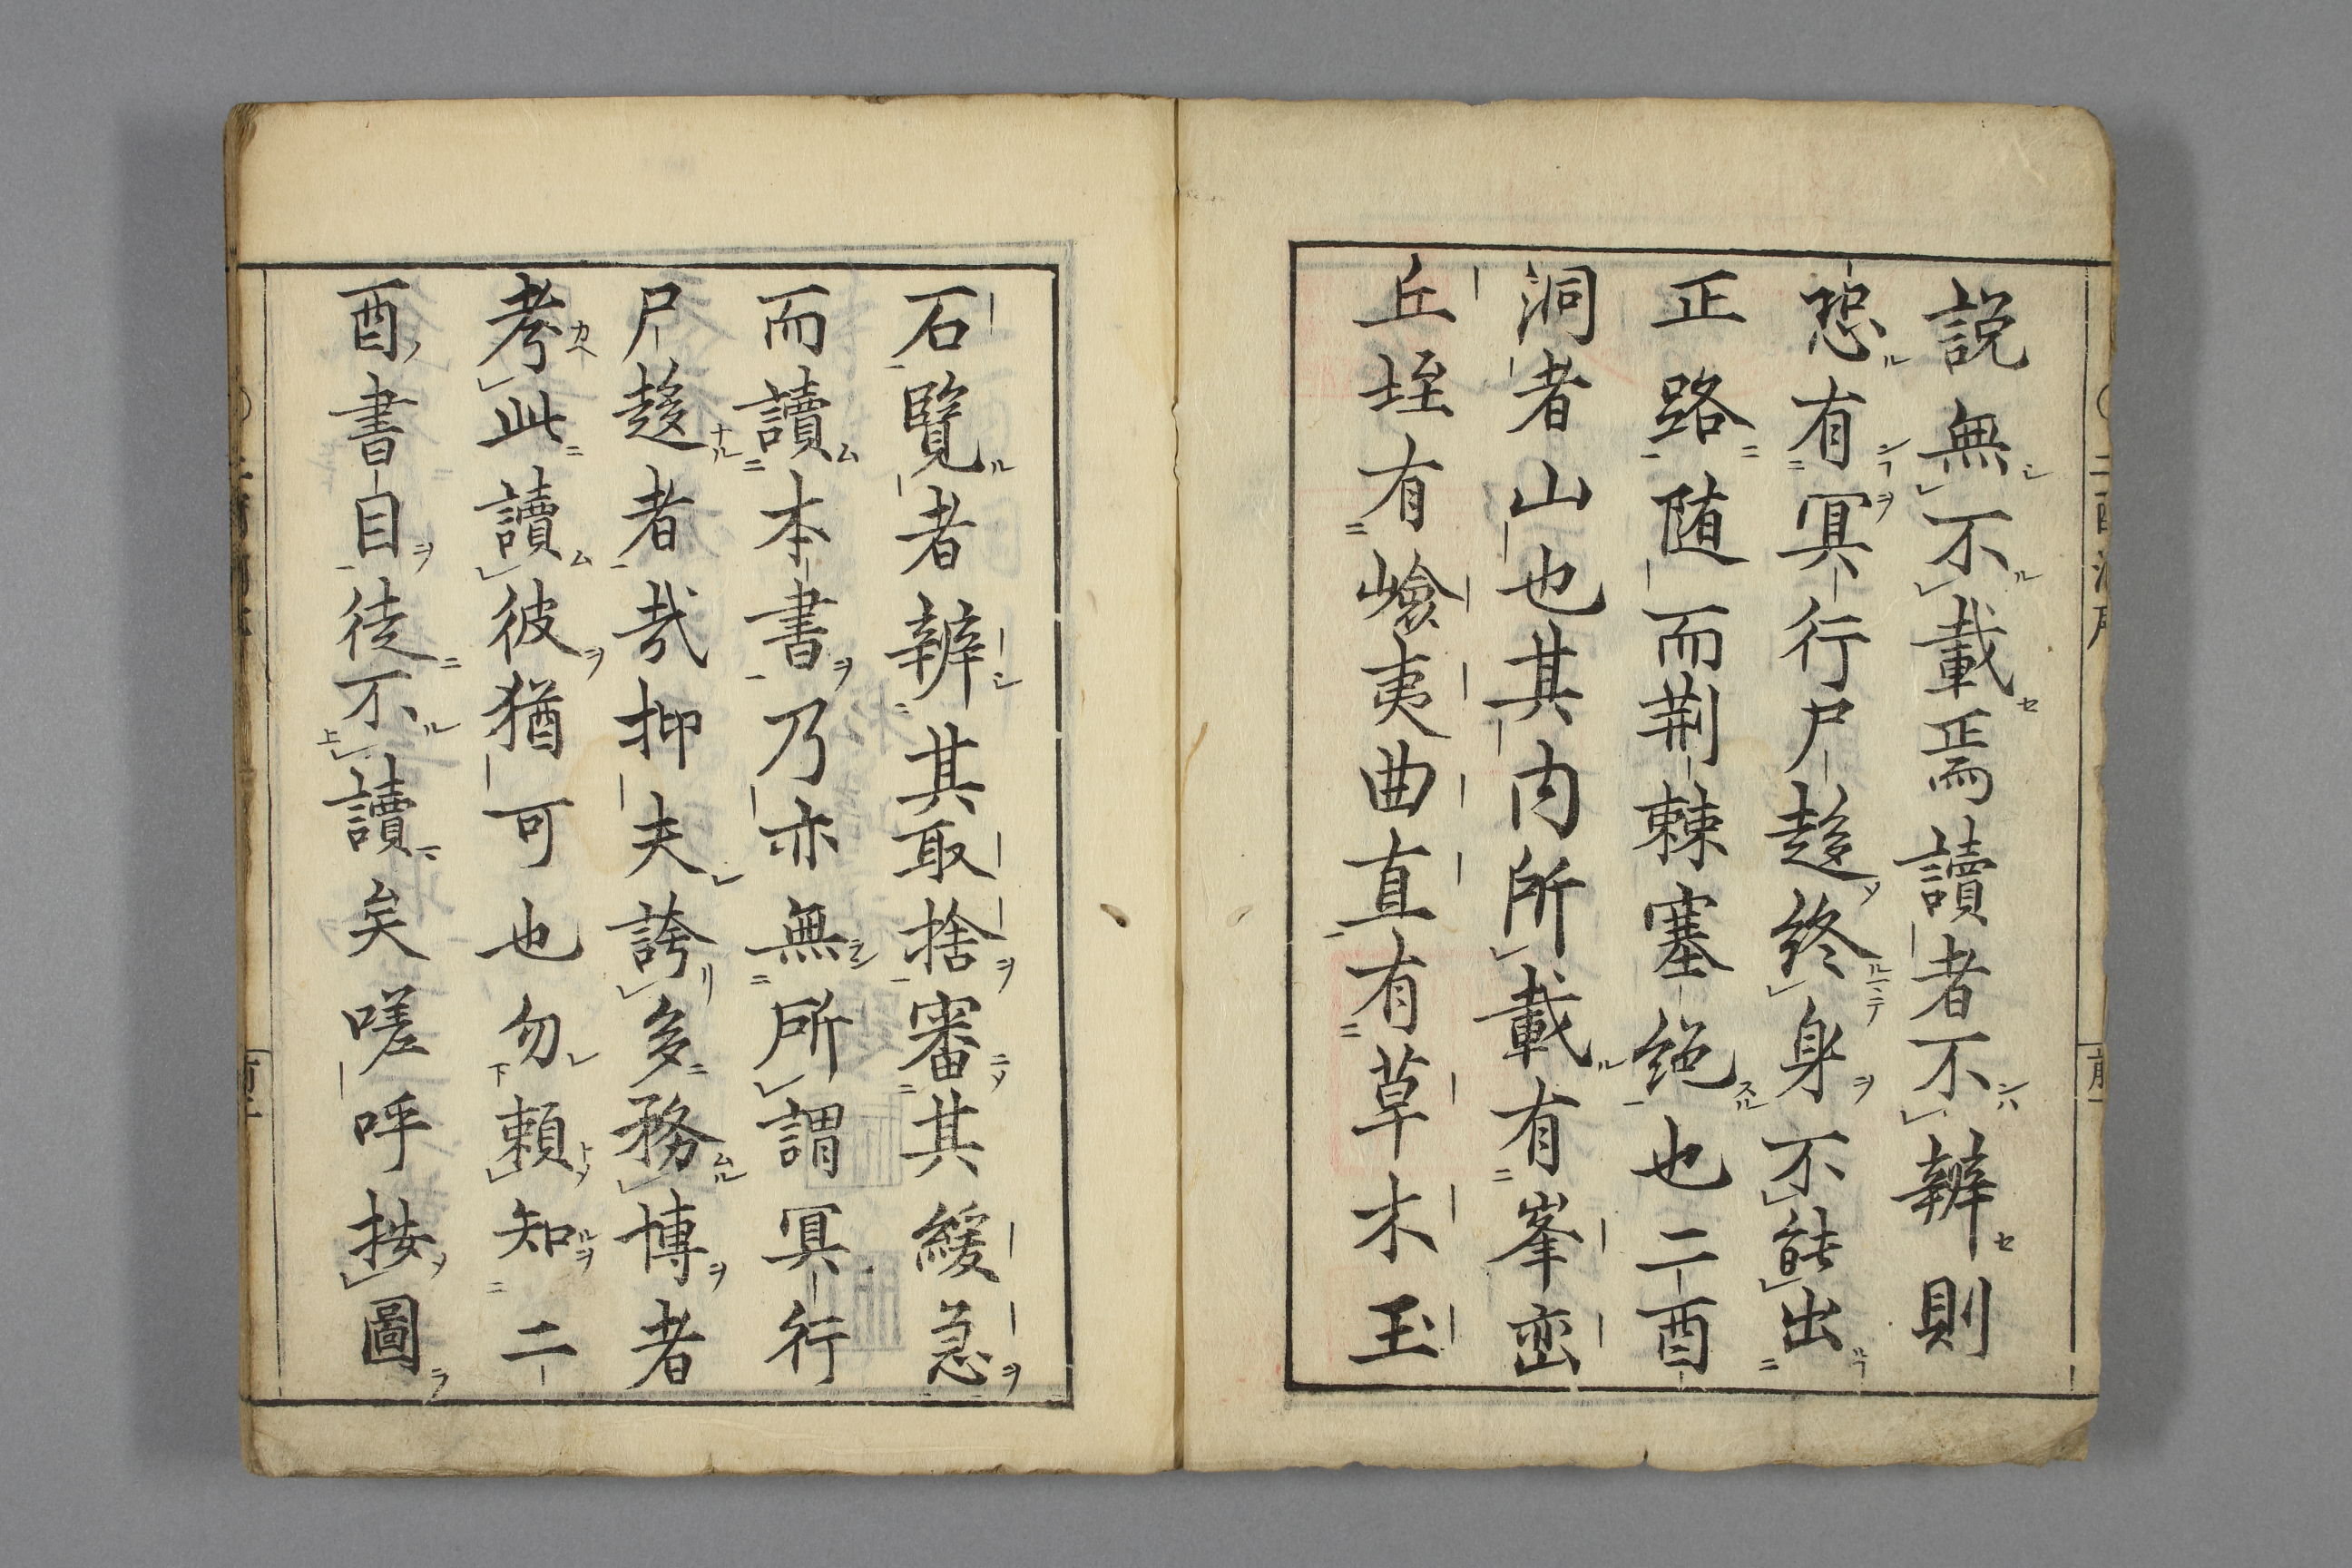 説無不載焉讀者不辨則
恐有冥行尸趍終身不能出
正路随而荆棘塞絶也二酉
洞者山也其内所載有峯巒
丘垤有嶮夷曲直有草木玉
石覧者辨其取捨審其緩急
而讀本書乃亦無所謂冥行
尸趍者哉抑夫誇多務博者
考此讀彼猶可也勿頼知二
酉書目徒不讀矣嗟呼按圖